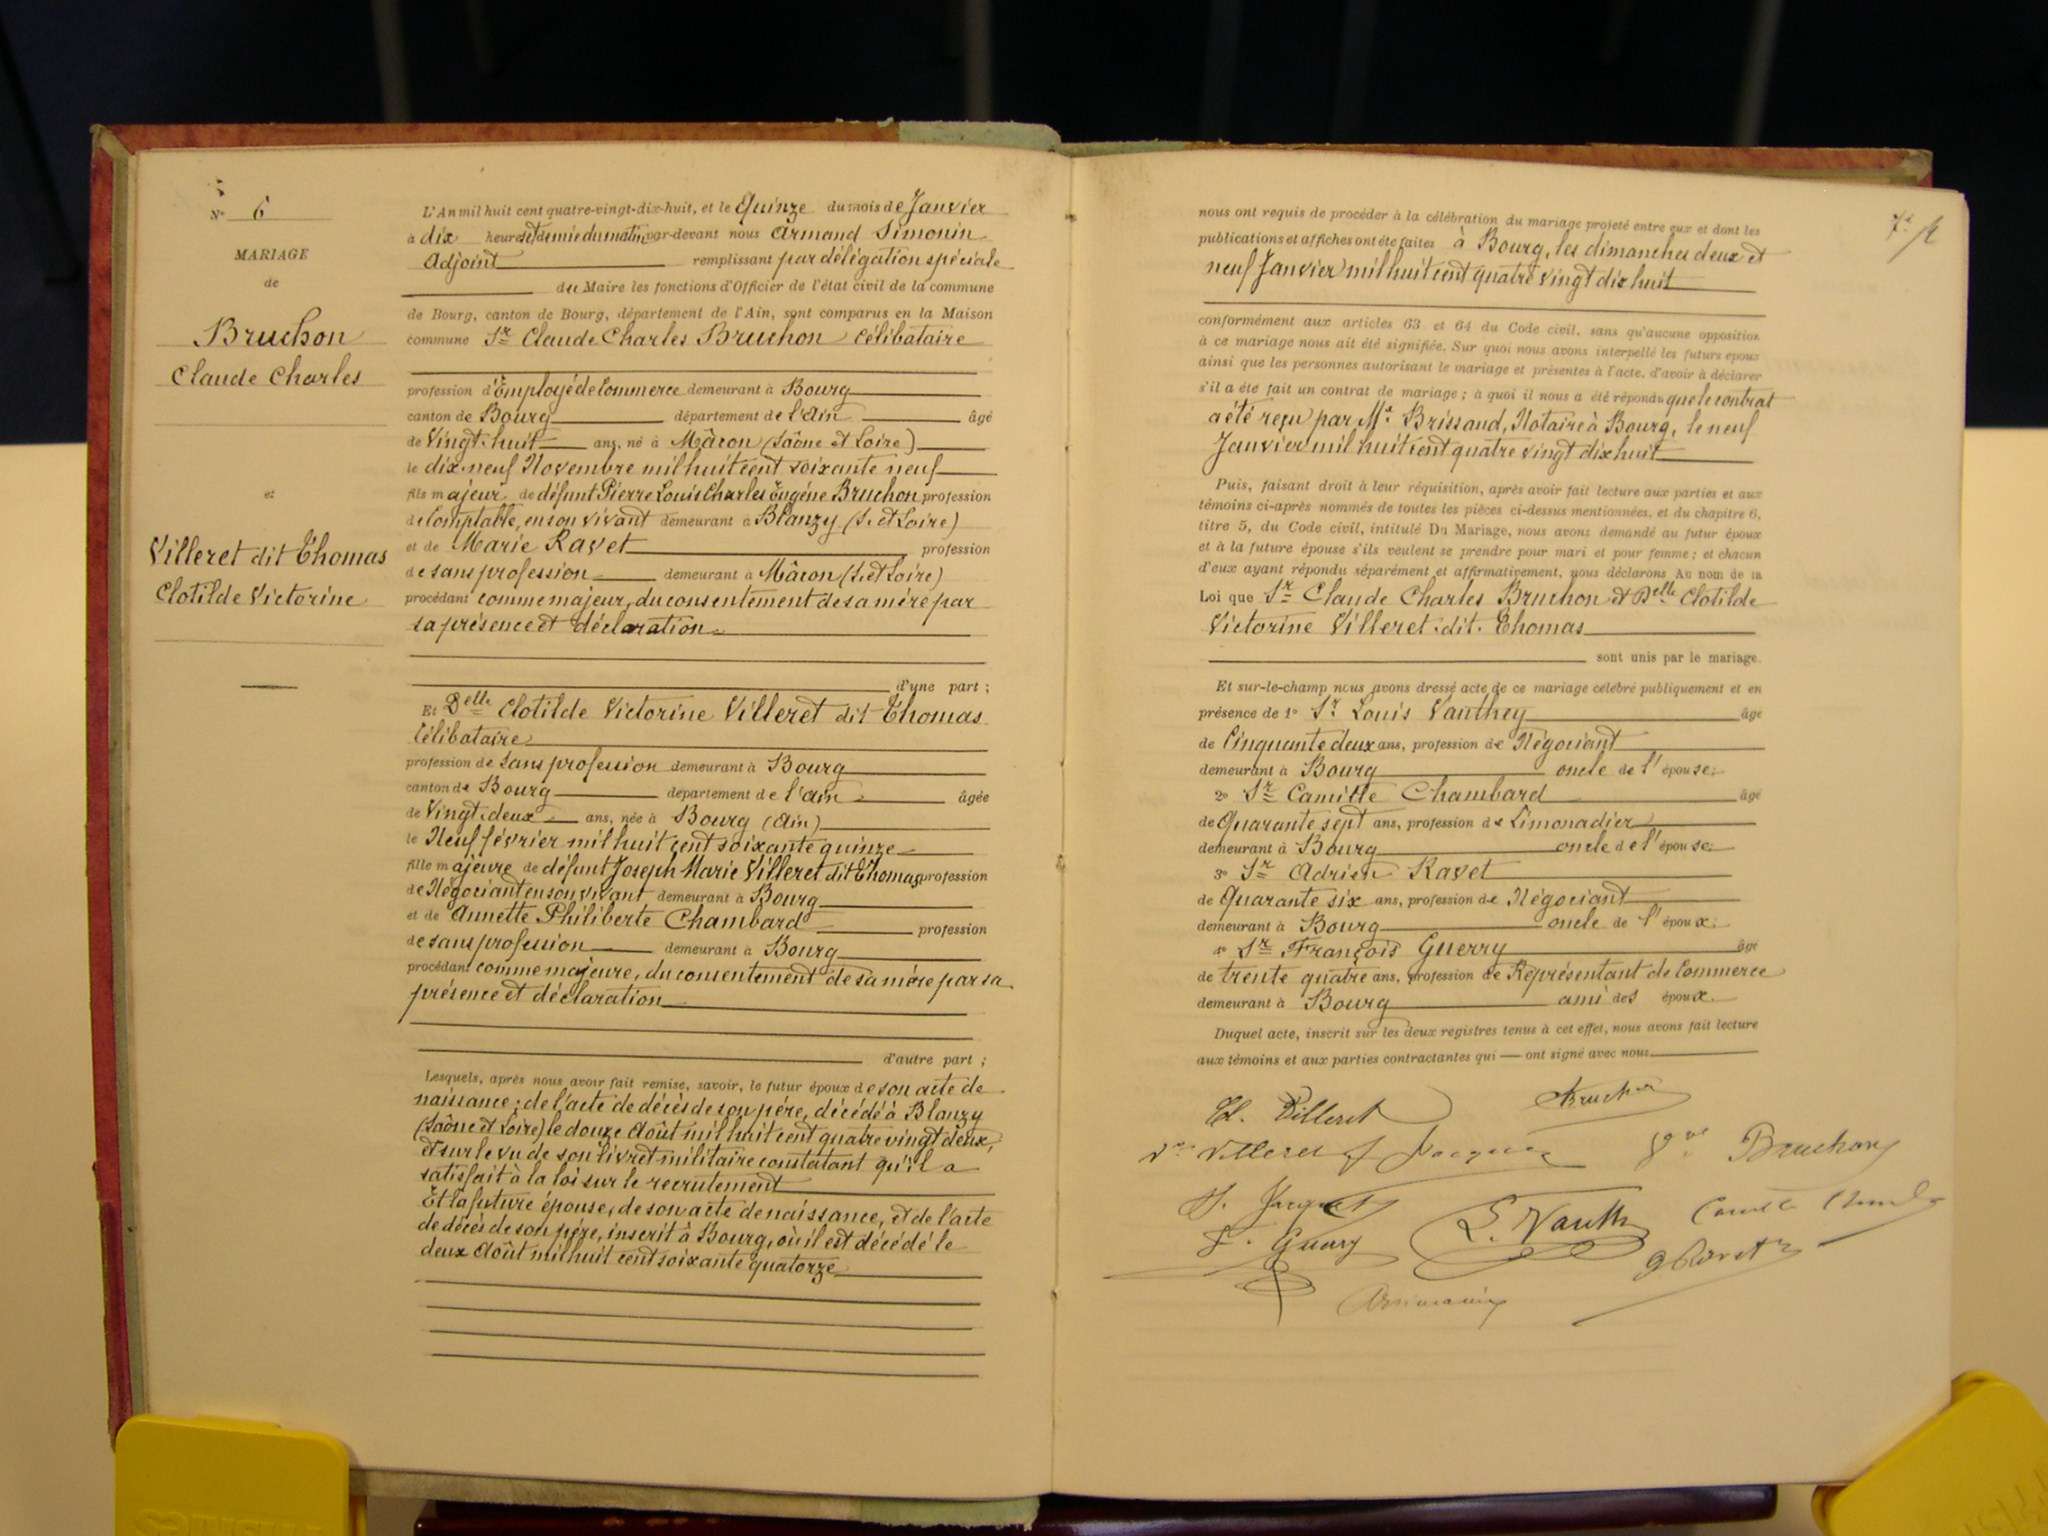 N° 6
MARIAGE
de
Bruchon
Claude Charles
et
Villeret dit Thomas
Clotilde Victorine
L'An mil huit cent quatre-vingt-dix-huit, et le Quinze du mois de Janvier
à dix heures et demie du matin par-devant nous Armand Simonin
Adjoint remplissant par délégation spéciale
du Maire les fonctions d'Officier de l'état civil de la commune
de Bourg, canton de Bourg, département de l'Ain, sont comparus en la Maison
commune Sr Claude Charles Bruchon Célibataire
profession d'Employé de Commerce demeurant à Bourg
canton de Bourg département de l'Ain âgé
de Vingt-huit ans, né à Mâcon (Saône et Loire)
le dix-neuf Novembre mil huit cent soixante neuf
fils majeur de défunt Pierre Louis Charles Eugène Bruchon profession
de Comptable, en son vivant demeurant à Blanzy (S. et Loire)
et de Marie Ravet profession
de sans profession demeurant à Mâcon (S. et Loire)
procédant comme majeur, du consentement de sa mère par
sa présence et déclaration
d'une part ;
Et Delle Clotilde Victorine Villeret dit Thomas
Célibataire
profession de sans profession demeurant à Bourg
canton de Bourg département de l'Ain âgée
de Vingt-deux ans, née à Bourg (Ain)
le Neuf février mil huit cent soixante quinze
fille majeure de défunt Joseph Marie Villeret dit Thomas profession
de Négociant en son vivant demeurant à Bourg
et de Annette Philiberte Chambard profession
de sans profession demeurant à Bourg
procédant comme majeure, du consentement de sa mère par sa
présence et déclaration
d'autre part ;
Lesquels, après nous avoir fait remise, savoir, le futur époux de son acte de
naissance ; de l'acte de décès de son père, décédé à Blanzy
(Saône et Loire) le douze Août mil huit cent quatre vingt deux,
et sur le vu de son livret militaire constatant qu'il a
satisfait à la loi sur le recrutement
Et la future épouse, de son acte de naissance, et de l'acte
de décès de son père, inscrit à Bourg, où il est décédé le
deux Août mil huit cent soixante quatorze
7e
nous ont requis de procéder à la célébration du mariage projeté entre eux et dont les
publications et affiches ont été faites à Bourg, les dimanches deux et
neuf Janvier mil huit cent quatre vingt dix huit
conformément aux articles 63 et 64 du Code civil, sans qu'aucune opposition
à ce mariage nous ait été signifiée. Sur quoi nous avons interpellé les futurs époux
ainsi que les personnes autorisant le mariage et présentes à l'acte, d'avoir à déclarer
s'il a été fait un contrat de mariage ; à quoi il nous a été répondu que le contrat
a été reçu par Me Brissaud, Notaire à Bourg, le neuf
Janvier mil huit cent quatre vingt dix huit
Puis, faisant droit à leur réquisition, après avoir fait lecture aux parties et aux
témoins ci-après nommés de toutes les pièces ci-dessus mentionnées, et du chapitre 6,
titre 5, du Code civil, intitulé Du Mariage, nous avons demandé au futur époux
et à la future épouse s'ils veulent se prendre pour mari et pour femme ; et chacun
d'eux ayant répondu séparément et affirmativement, nous déclarons Au nom de la
Loi que Sr Claude Charles Bruchon et Delle Clotilde
Victorine Villeret dit Thomas
sont unis par le mariage.
Et sur-le-champ nous avons dressé acte de ce mariage célébré publiquement et en
présence de 1° Sr Louis Vauthey âgé
de Cinquante deux ans, profession de Négociant
demeurant à Bourg oncle de l'épouse.
2° Sr Camille Chambard âgé
de Quarante sept ans, profession de Limonadier
demeurant à Bourg oncle de l'épouse.
3° Sr Adrien Ravet
de Quarante six ans, profession de Négociant
demeurant à Bourg oncle de l'époux.
4° Sr François Guerry âgé
de trente quatre ans, profession de Représentant de Commerce
demeurant à Bourg ami des époux.
Duquel acte, inscrit sur les deux registres tenus à cet effet, nous avons fait lecture
aux témoins et aux parties contractantes qui ont signé avec nous.
Cl. Villeret Bruchon
Vve Villeret Vve Bruchon
F. Guerry L. Vauthey